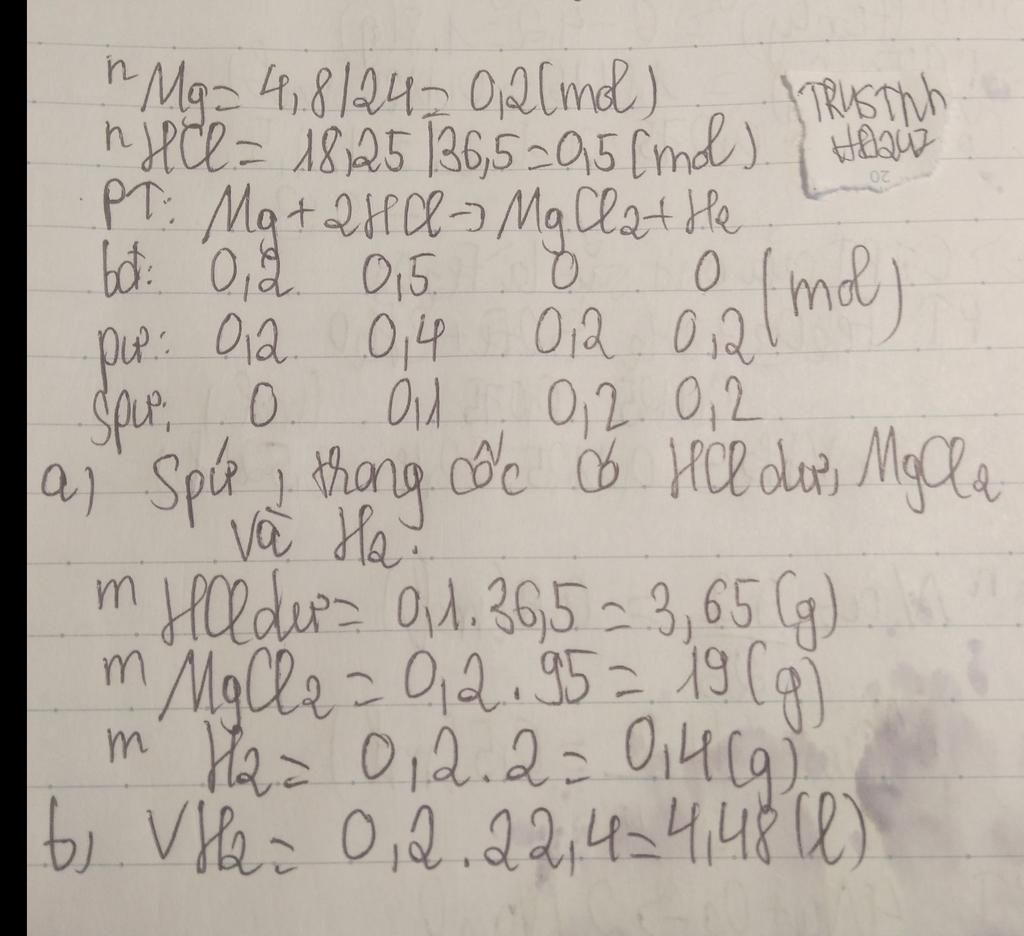 nMg = 4,8/24 = 0,2 (mol)
nHCl = 18,25/36,5 = 0,5 (mol)
PT: Mg + 2HCl → MgCl2 + H2
bđ: 0,2 0,5 0 0 (mol)
pư: 0,2 0,4 0,2 0,2
spư: 0 0,1 0,2 0,2
a) Spứ, trong cốc có HCl dư, MgCl2
và H2.
m HCl dư = 0,1.36,5 = 3,65 (g)
m MgCl2 = 0,2.95 = 19 (g)
m H2 = 0,2.2 = 0,4 (g)
b) VH2 = 0,2.22,4 = 4,48 (l)
20